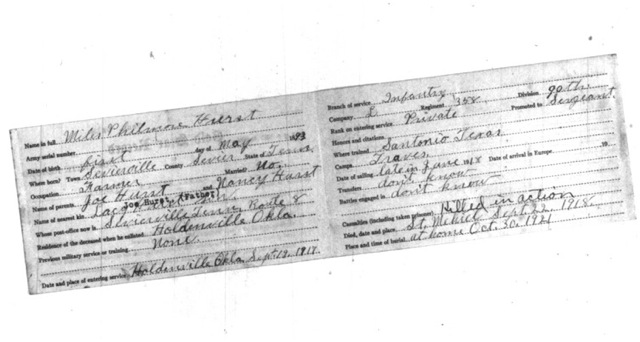 Name in full Miles Philmore Hurst
Army serial number
Date of birth first day of May 1893
Where born? Town Sevierville County Sevier State of Tenn
Occupation Farmer Married? No.
Name of parents Joe Hurst Nancy Hurst
Name of nearest kin Joe Hurst (Father)
Whose post-office now is Sevierville Tenn Route 8
Residence of the deceased when he entered Holdenville Okla.
Previous military service or training None
Date and place of entering service Holdenville Okla Sept 18, 1917.
Branch of service Infantry
Company L Regiment 358 Division 90th
Rank on entering service Private Promoted to Sergeant
Honors and citations
Where trained Santonio Texas
Camps Travis
Date of sailing late in June 1918 Date of arrival in Europe 19
Transfers don't know
Battles engaged in don't know
Casualties (including taken prisoner) Killed in action
Died, date and place St. Mihiel Sept. 22, 1918.
Place and time of burial at home Oct. 30, 1921